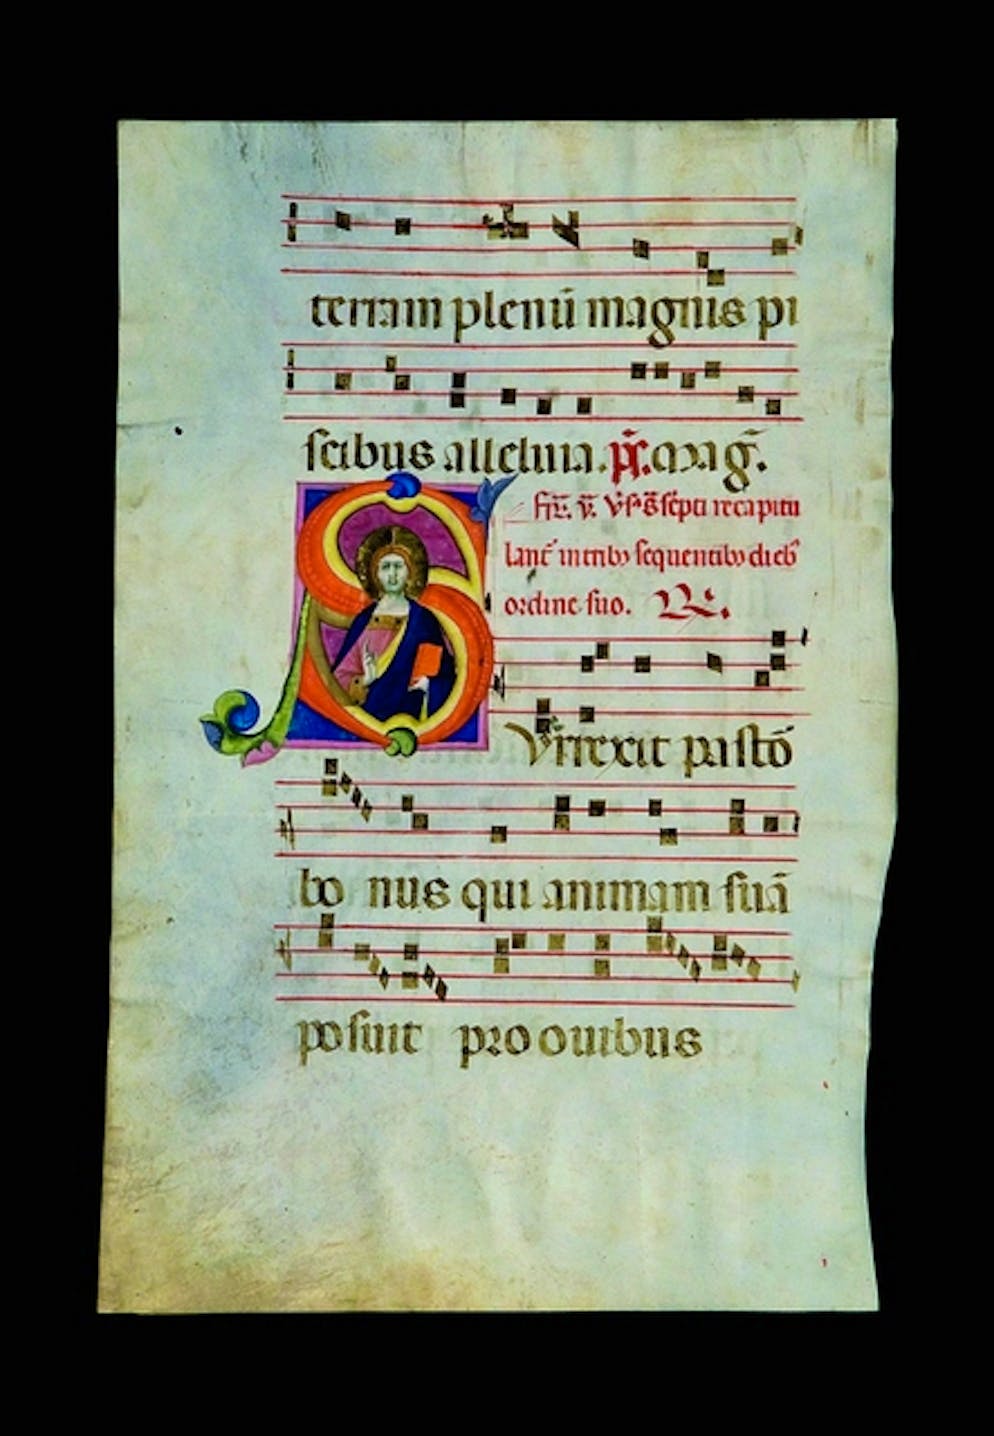 terram plenū magnis pi
scibus alleluia. p̄s. mag̃.
recapitu
lant̃ in trib⁹ sequentib⁹ dieb⁹
ordine suo. R̷.
Surrexit pastō
bo nus qui animam suā
posuit pro ouibus